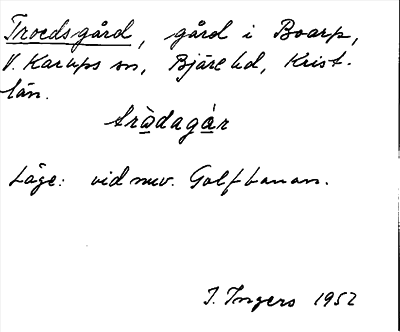 Troedsgård, gård i Boarp,
V. Karups sn, Bjäre hd, Krist.
län.
trädagår
Läge: vid nuv. Golfbanan.
I. Ingers 1952